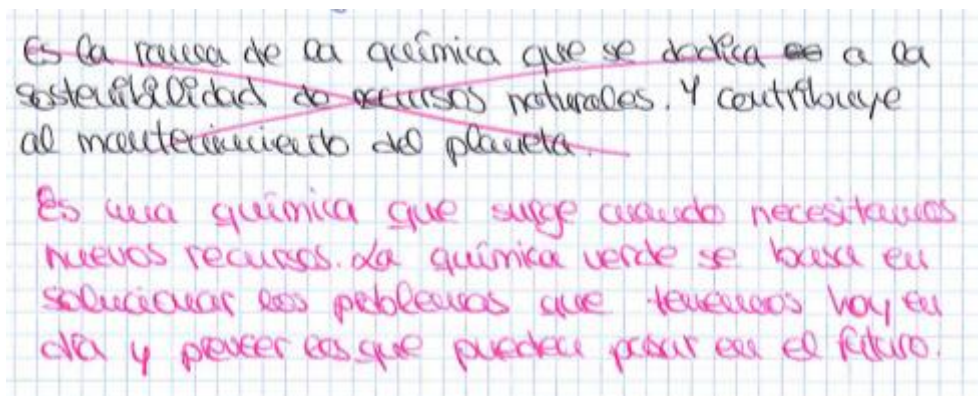 Es la rama de la química que se dedica a la
sostenibilidad de recursos naturales. Y contribuye
al mantenimiento del planeta.
Es una química que surge cuando necesitamos
nuevos recursos. La química verde se basa en
solucionar los problemas que tenemos hoy en
día y preveer los que pueden pasar en el futuro.